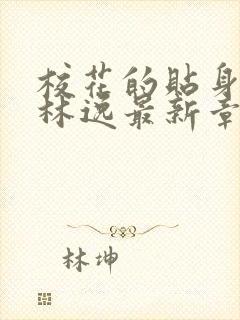 校花的貼身
林逸最新章
林坤